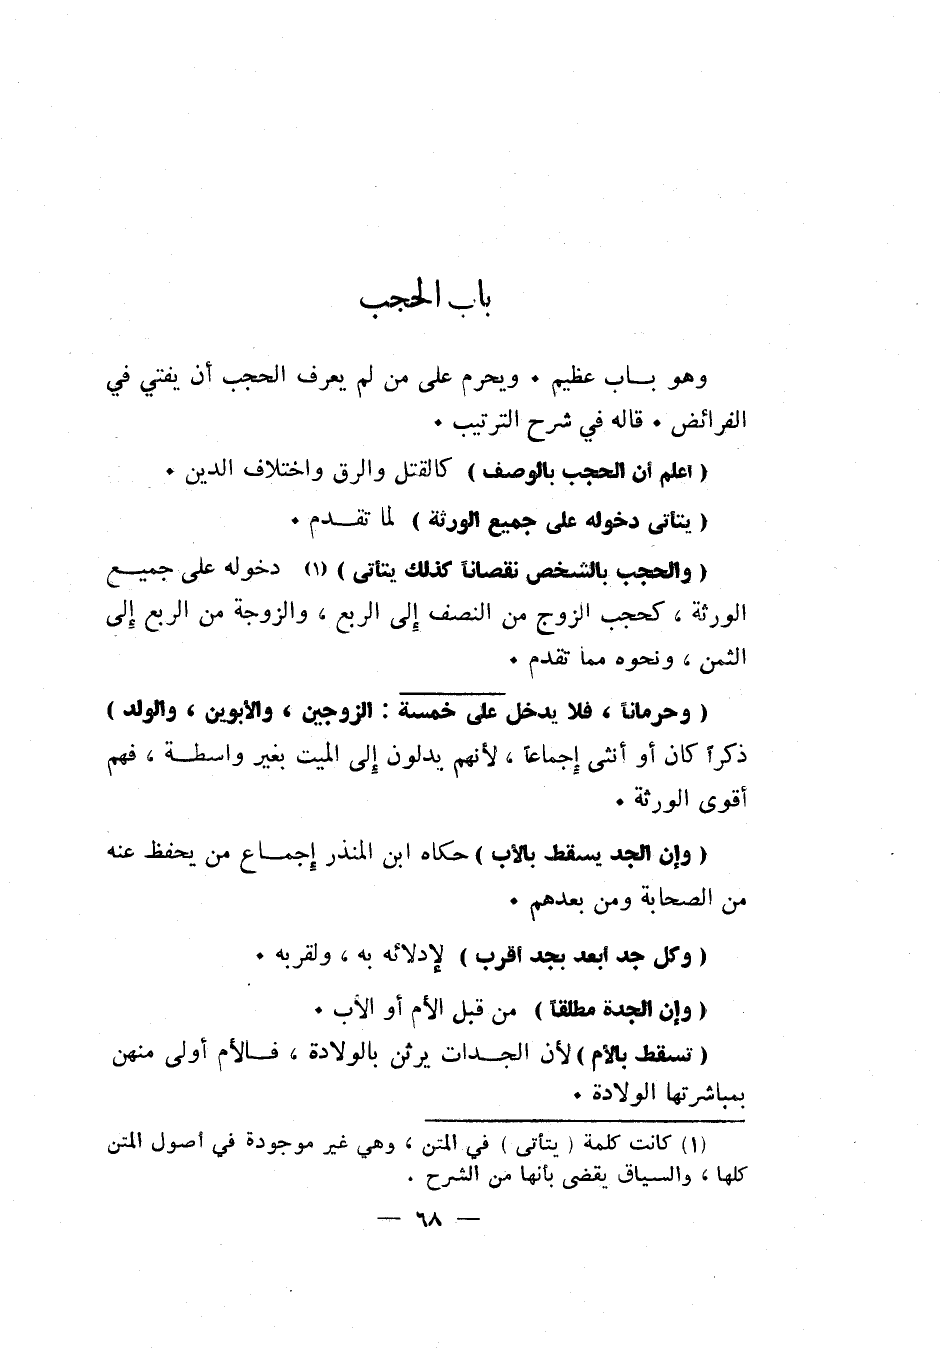 باب الحجب
وهو بـــاب عظيم . ويحرم على من لم يعرف الحجب أن يفتي في
الفرائض . قاله في شرح الترتيب .
( اعلم أن الحجب بالوصف ) كالقتل والرق واختلاف الدين .
( يتأتى دخوله على جميع الورثة ) لما تقـــدم .
( والحجب بالشخص نقصاناً كذلك يتأتى ) (١) دخوله على جميـــع
الورثة ، كحجب الزوج من النصف إلى الربع ، والزوجة من الربع إلى
الثمن ، ونحوه مما تقدم .
( وحرماناً ، فلا يدخل على خمسة : الزوجين ، والأبوين ، والولد )
ذكراً كان أو أنثى إجماعاً ، لأنهم يدلون إلى الميت بغير واسطـــة ، فهم
أقوى الورثة .
( وإن الجد يسقط بالأب ) حكاه ابن المنذر إجمـــاع من يحفظ عنه
من الصحابة ومن بعدهم .
( وكل جد أبعد بجد أقرب ) لإدلائه به ، ولقربه .
( وإن الجدة مطلقاً ) من قبل الأم أو الأب .
( تسقط بالأم ) لأن الجـــدات يرثن بالولادة ، فـــالأم أولى منهن
بمباشرتها الولادة .
(١) كانت كلمة ( يتأتى ) في المتن ، وهي غير موجودة في أصول المتن
كلها ، والسياق يقضى بأنها من الشرح .
— ٦٨ —